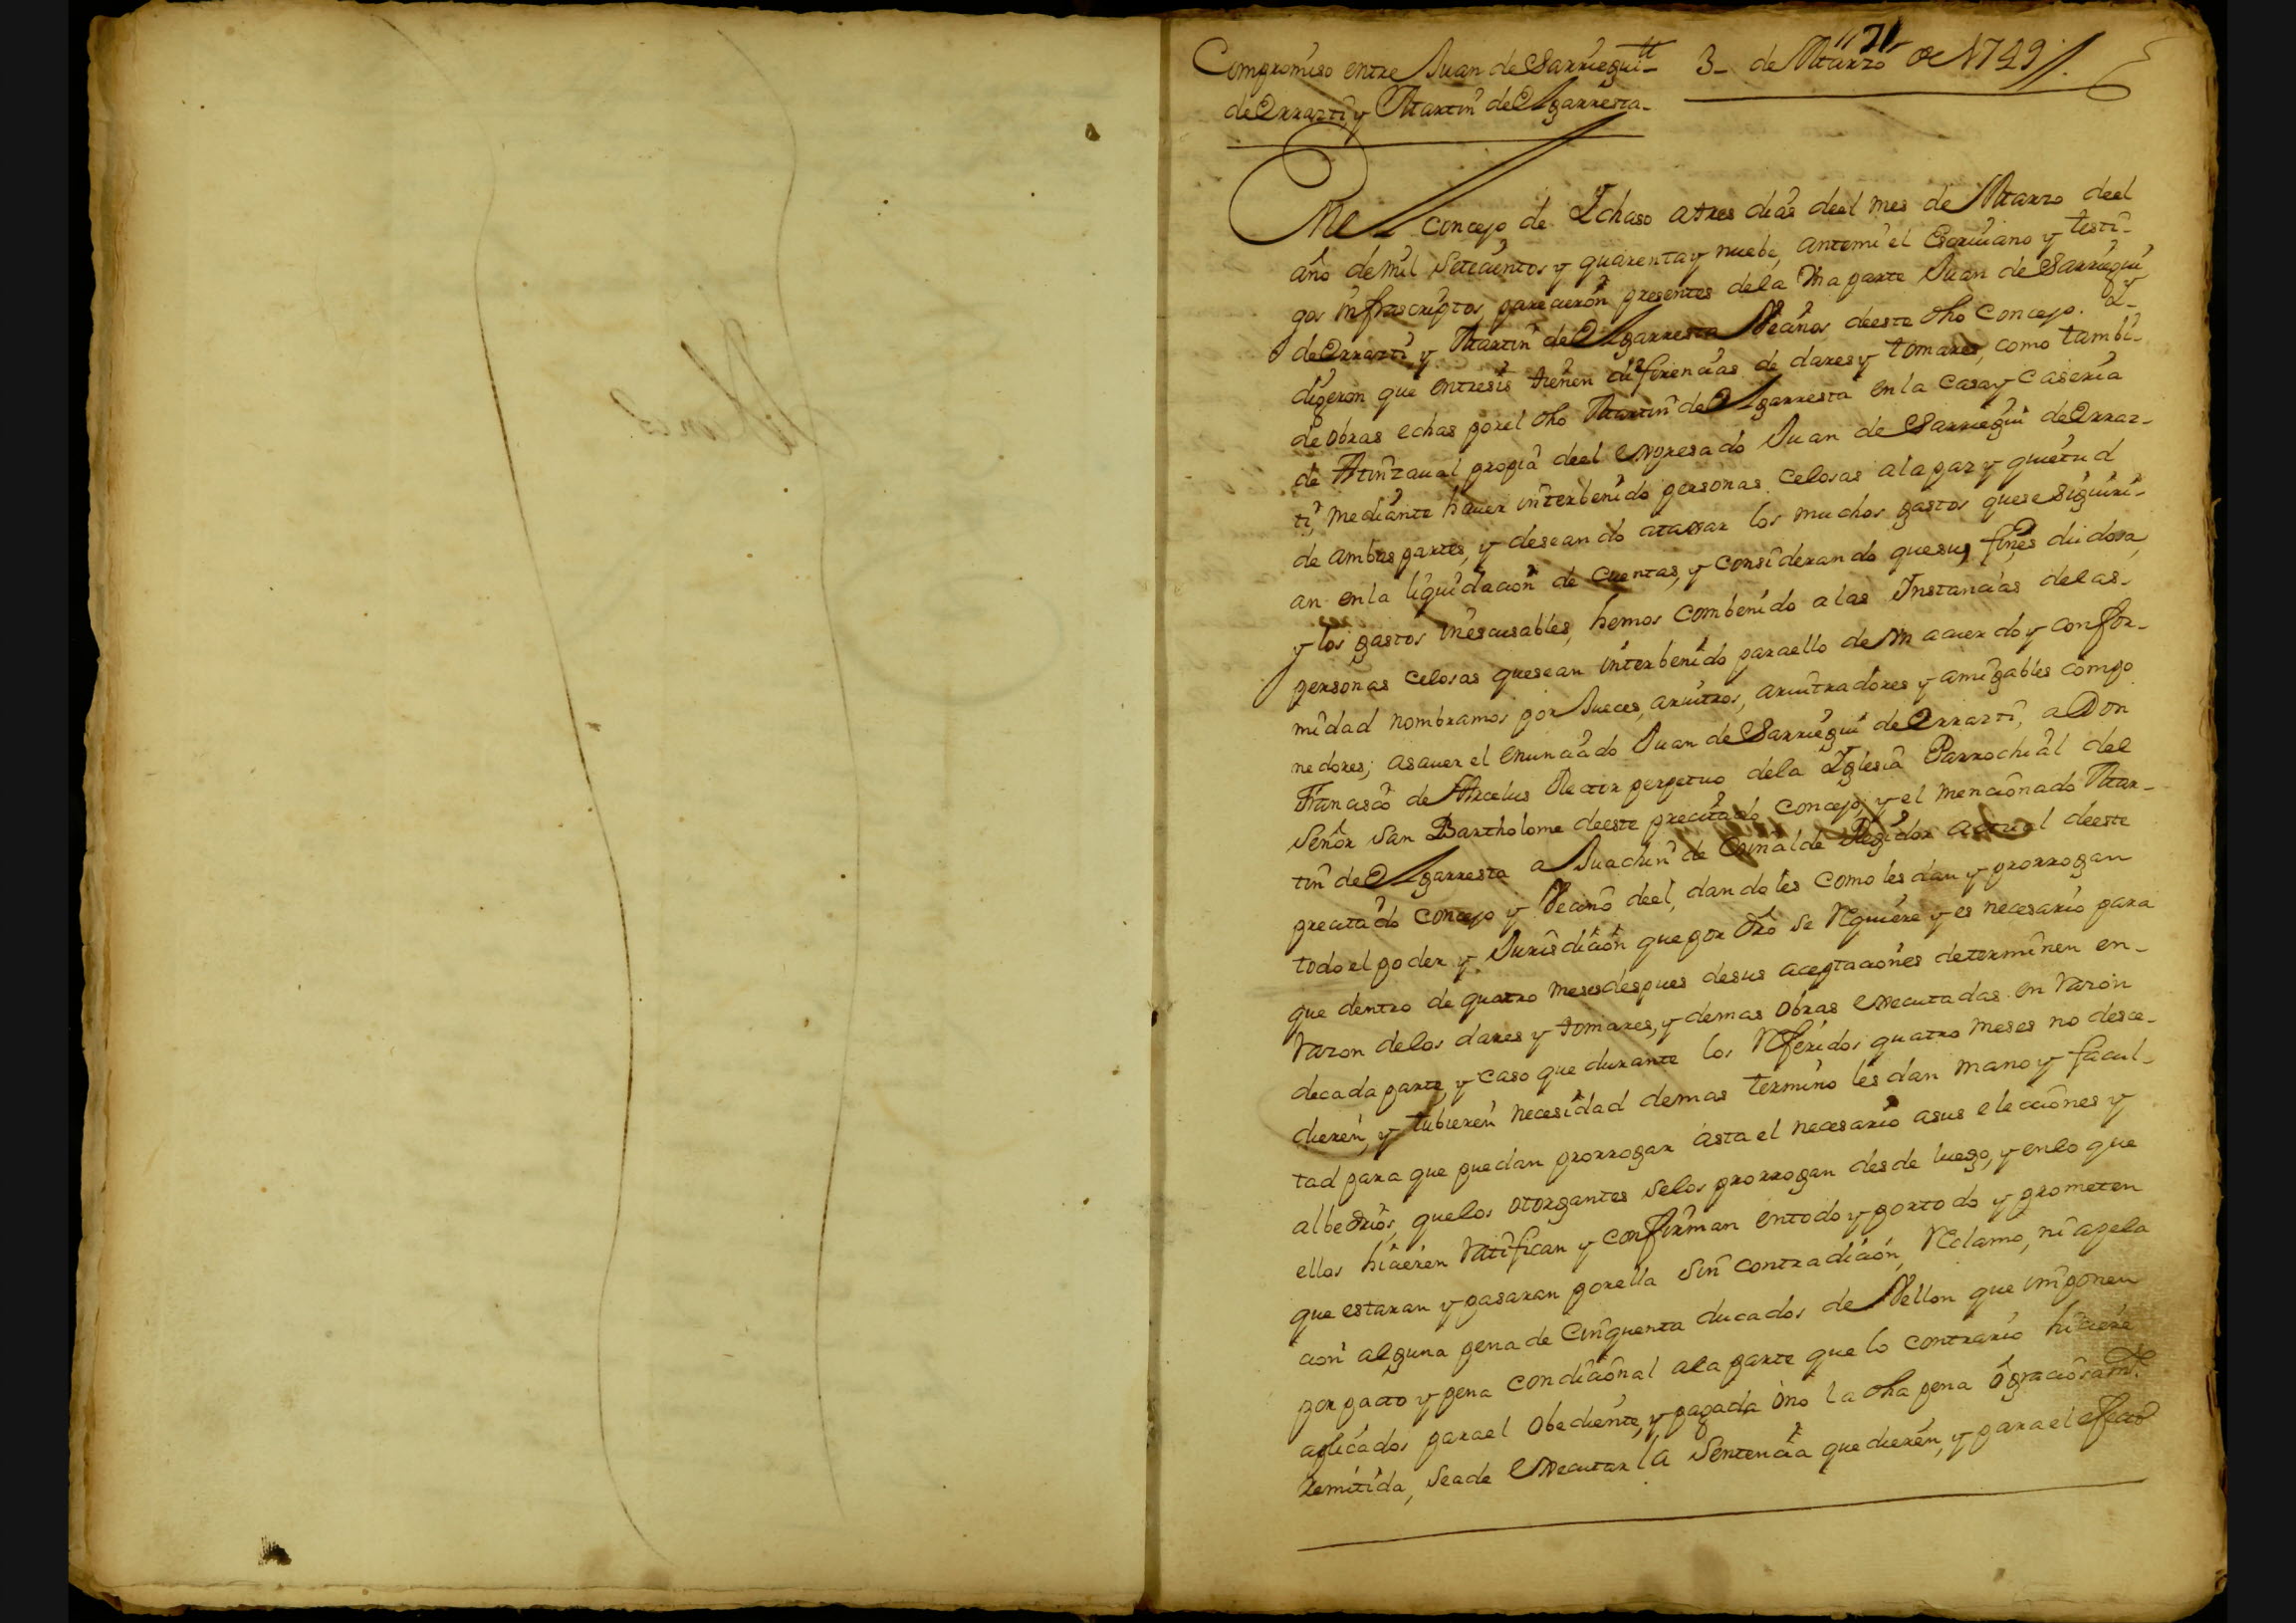 71
Compromiso entre Juan de Sarriegui
de Orrazti, y Martin de Olgarresta
3 de Marzo de 1749
En el concejo de Ychaso a tres dias deel mes de Marzo deel
año de mil Setecientos y quarenta y nuebe, antemi el Escriuano y testi-
gos infrascriptos, parecieron presentes dela Vna parte Juan de Sarriegui
de Orrazti, y Martin de Olgarresta Vecinos deeste dho concejo. y
digeron que entresis tienen difirencias de dares y tomares, como tambi-
de obras echas porel dho Martin de Olgarresta en la casa y caseria
de Atinzaual propia deel expresado Juan de Sarriegui de Orraz-
ti, mediante hauer interbenido personas celosas ala paz y quietud
de ambas partes, y deseando ataxar los muchos gastos quese siguiri-
an enla liquidacion de cuentas, y considerando quesus fines dudosa,
y los gastos inescusables, hemos combenido alas Instancias delas
personas celosas quesean interbenido paraello de Vn acuerdo y confor-
midad nombramos por Jueces, aruitros, aruitradores y amigables compo
nedores; asauer el enunciado Juan de Sarriegui de Orrazti, a Don
Francisco de Arcelus Rector perpetuo dela Yglesia Parrochial del
Señor San Bartholome deeste precitado concejo, y el mencionado Mar-
tin de Olgarresta a Juachin de Regidor actual deeste
precitado concejo y Vecino deel, dandoles como les dan y prorrogan
todo el poder y Jurisdicion que por dro se Requiere y es necesario para
que dentro de quatro meses despues desus aceptaciones determinen en
razon delos dares y tomares, y demas obras executadas en razon
decada parte, y caso que durante los Referidos quatro meses no desce-
dieren, y tubieren necesidad demas termino les dan mano y facul-
tad para que puedan prorrogar asta el necesario asus elecciones y
albedrios, quelos otorgantes selos prorrogan desde luego, y enlo que
ellos hicieren ratifican y confirman entodo y portodo y prometen
que estaran y pasaran porella sin contradicion, Reclamo, ni apela
cion alguna pena de cinquenta ducados de Vellon que imponen
por pacto y pena condicional ala parte que lo contrario hiciere
aplicados parael obediente, y pagada ono la dha pena o graciosamte
remitida, seade executar la Sentencia que dieren, y para el efecto